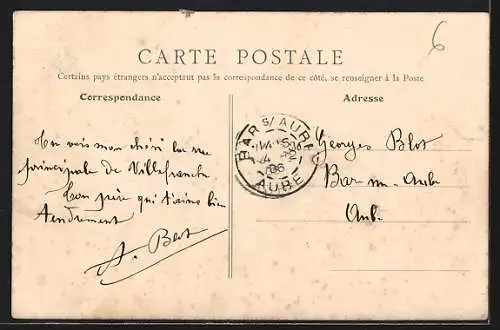 6
CARTE POSTALE
Certains pays étrangers n'acceptant pas la correspondance de ce côté, se renseigner à la Poste
Correspondance
Adresse
Tu vois mon chéri la rue
principale de Villefranche
Ton père qui t'aime bien
tendrement
A. Blot
BAR S/AUBE
06
AUBE
Georges Blot
Bar sur Aube
Aub.